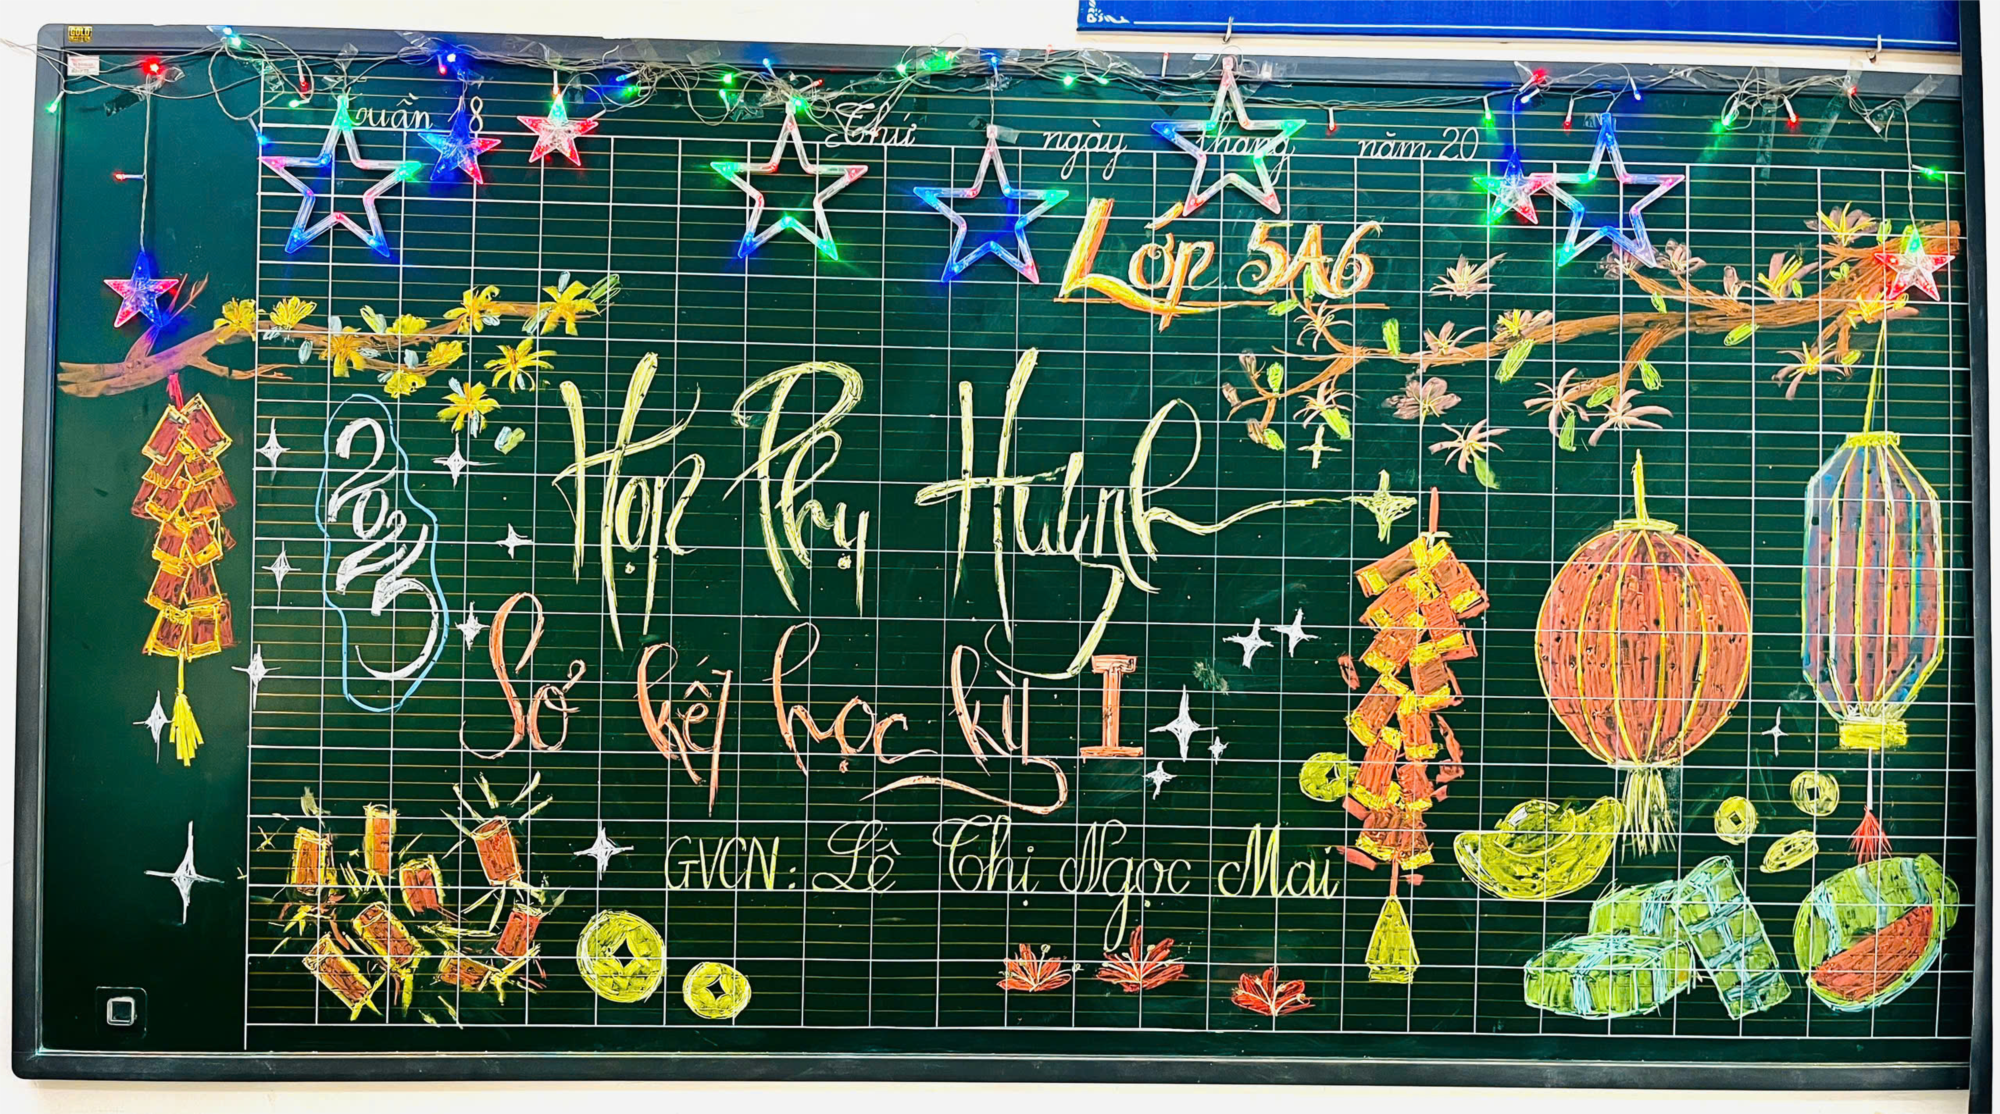 GOLD
Tuần 18 Thứ ngày tháng năm 20
Lớp 5A6
2025
Họp Phụ Huynh
Sơ kết học kỳ I
GVCN: Lê Thị Ngọc Mai